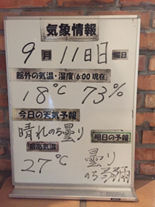 気象情報
9月11日 曜日
館外の気温・湿度 6:00 現在
18℃ 73%
今日の天気予報
晴れのち曇り
明日の予報
最高気温
27℃
曇り
のち